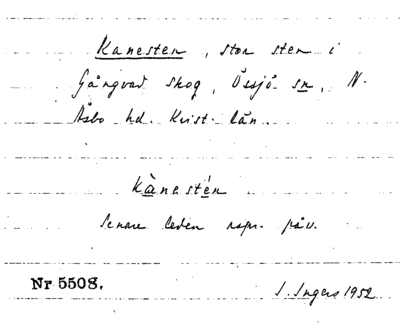 Kanesten, stor sten i
Gångvad skog, Össjö sn, N.
Åsbo hd. Krist. län.
Kànestén
Senare leden uspr. påv.
Nr 5508.
I. Ingers 1952